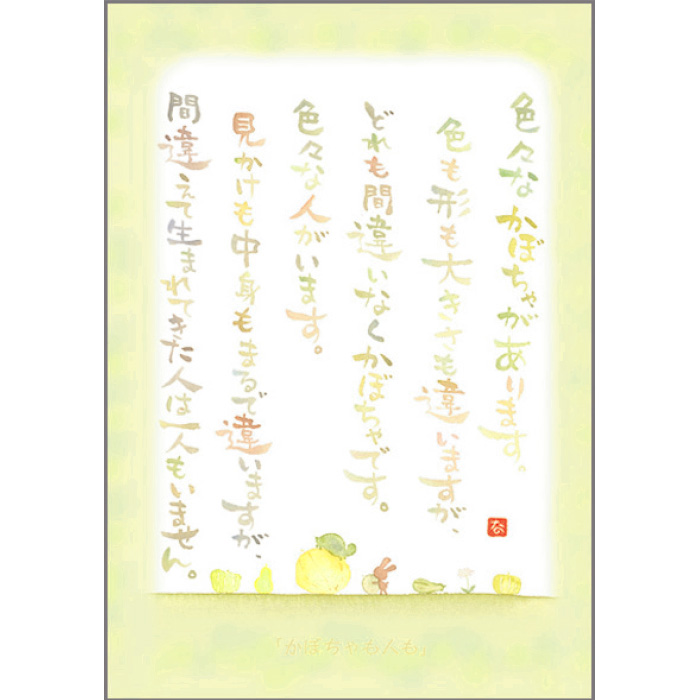 色々なかぼちゃがあります。
色も形も大きさも違いますが、
どれも間違いなくかぼちゃです。
色々な人がいます。
見かけも中身もまるで違いますが、
間違えて生まれてきた人は一人もいません。
「かぼちゃも人も」